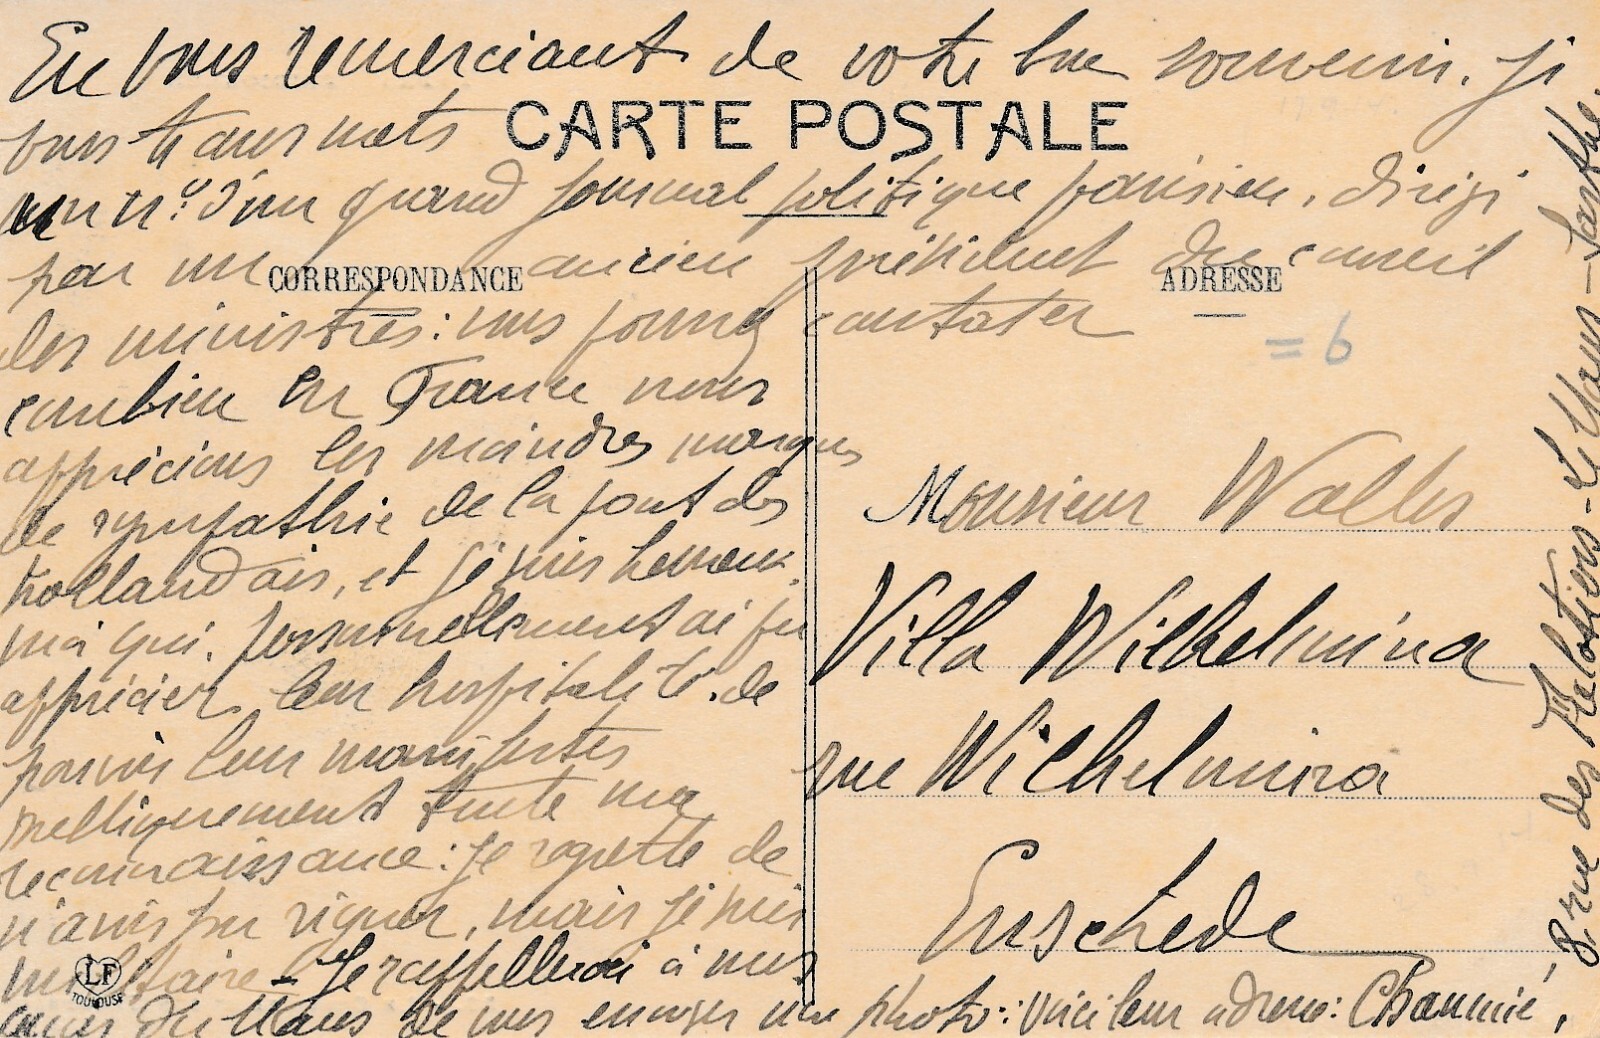 En vous remerciant de votre bon souvenir, je
vous transmets
CARTE POSTALE
un n° d'un grand journal politique parisien, dirigé
par un ancien président du conseil
CORRESPONDANCE
ADRESSE
des ministres: vous pourrez constater
= 6
combien en France nous
apprécions les moindres marques
de sympathie de la part des
hollandais, et je suis heureux,
moi qui, personnellement ai pu
apprécier leur hospitalité, de
pouvoir leur manifester
publiquement toute ma
reconnaissance: je regrette de
n'avoir pu signer, mais je suis
militaire - Je rappellerai à mes
amis du Mans de vous envoyer une photo: voici leur adresse: Chaumié,
8 rue des Filotiers - Le Mans - Sarthe.
Monsieur Walles
Villa Wilhelmina
rue Wilhelmina
Enschede
LF
TOULOUSE